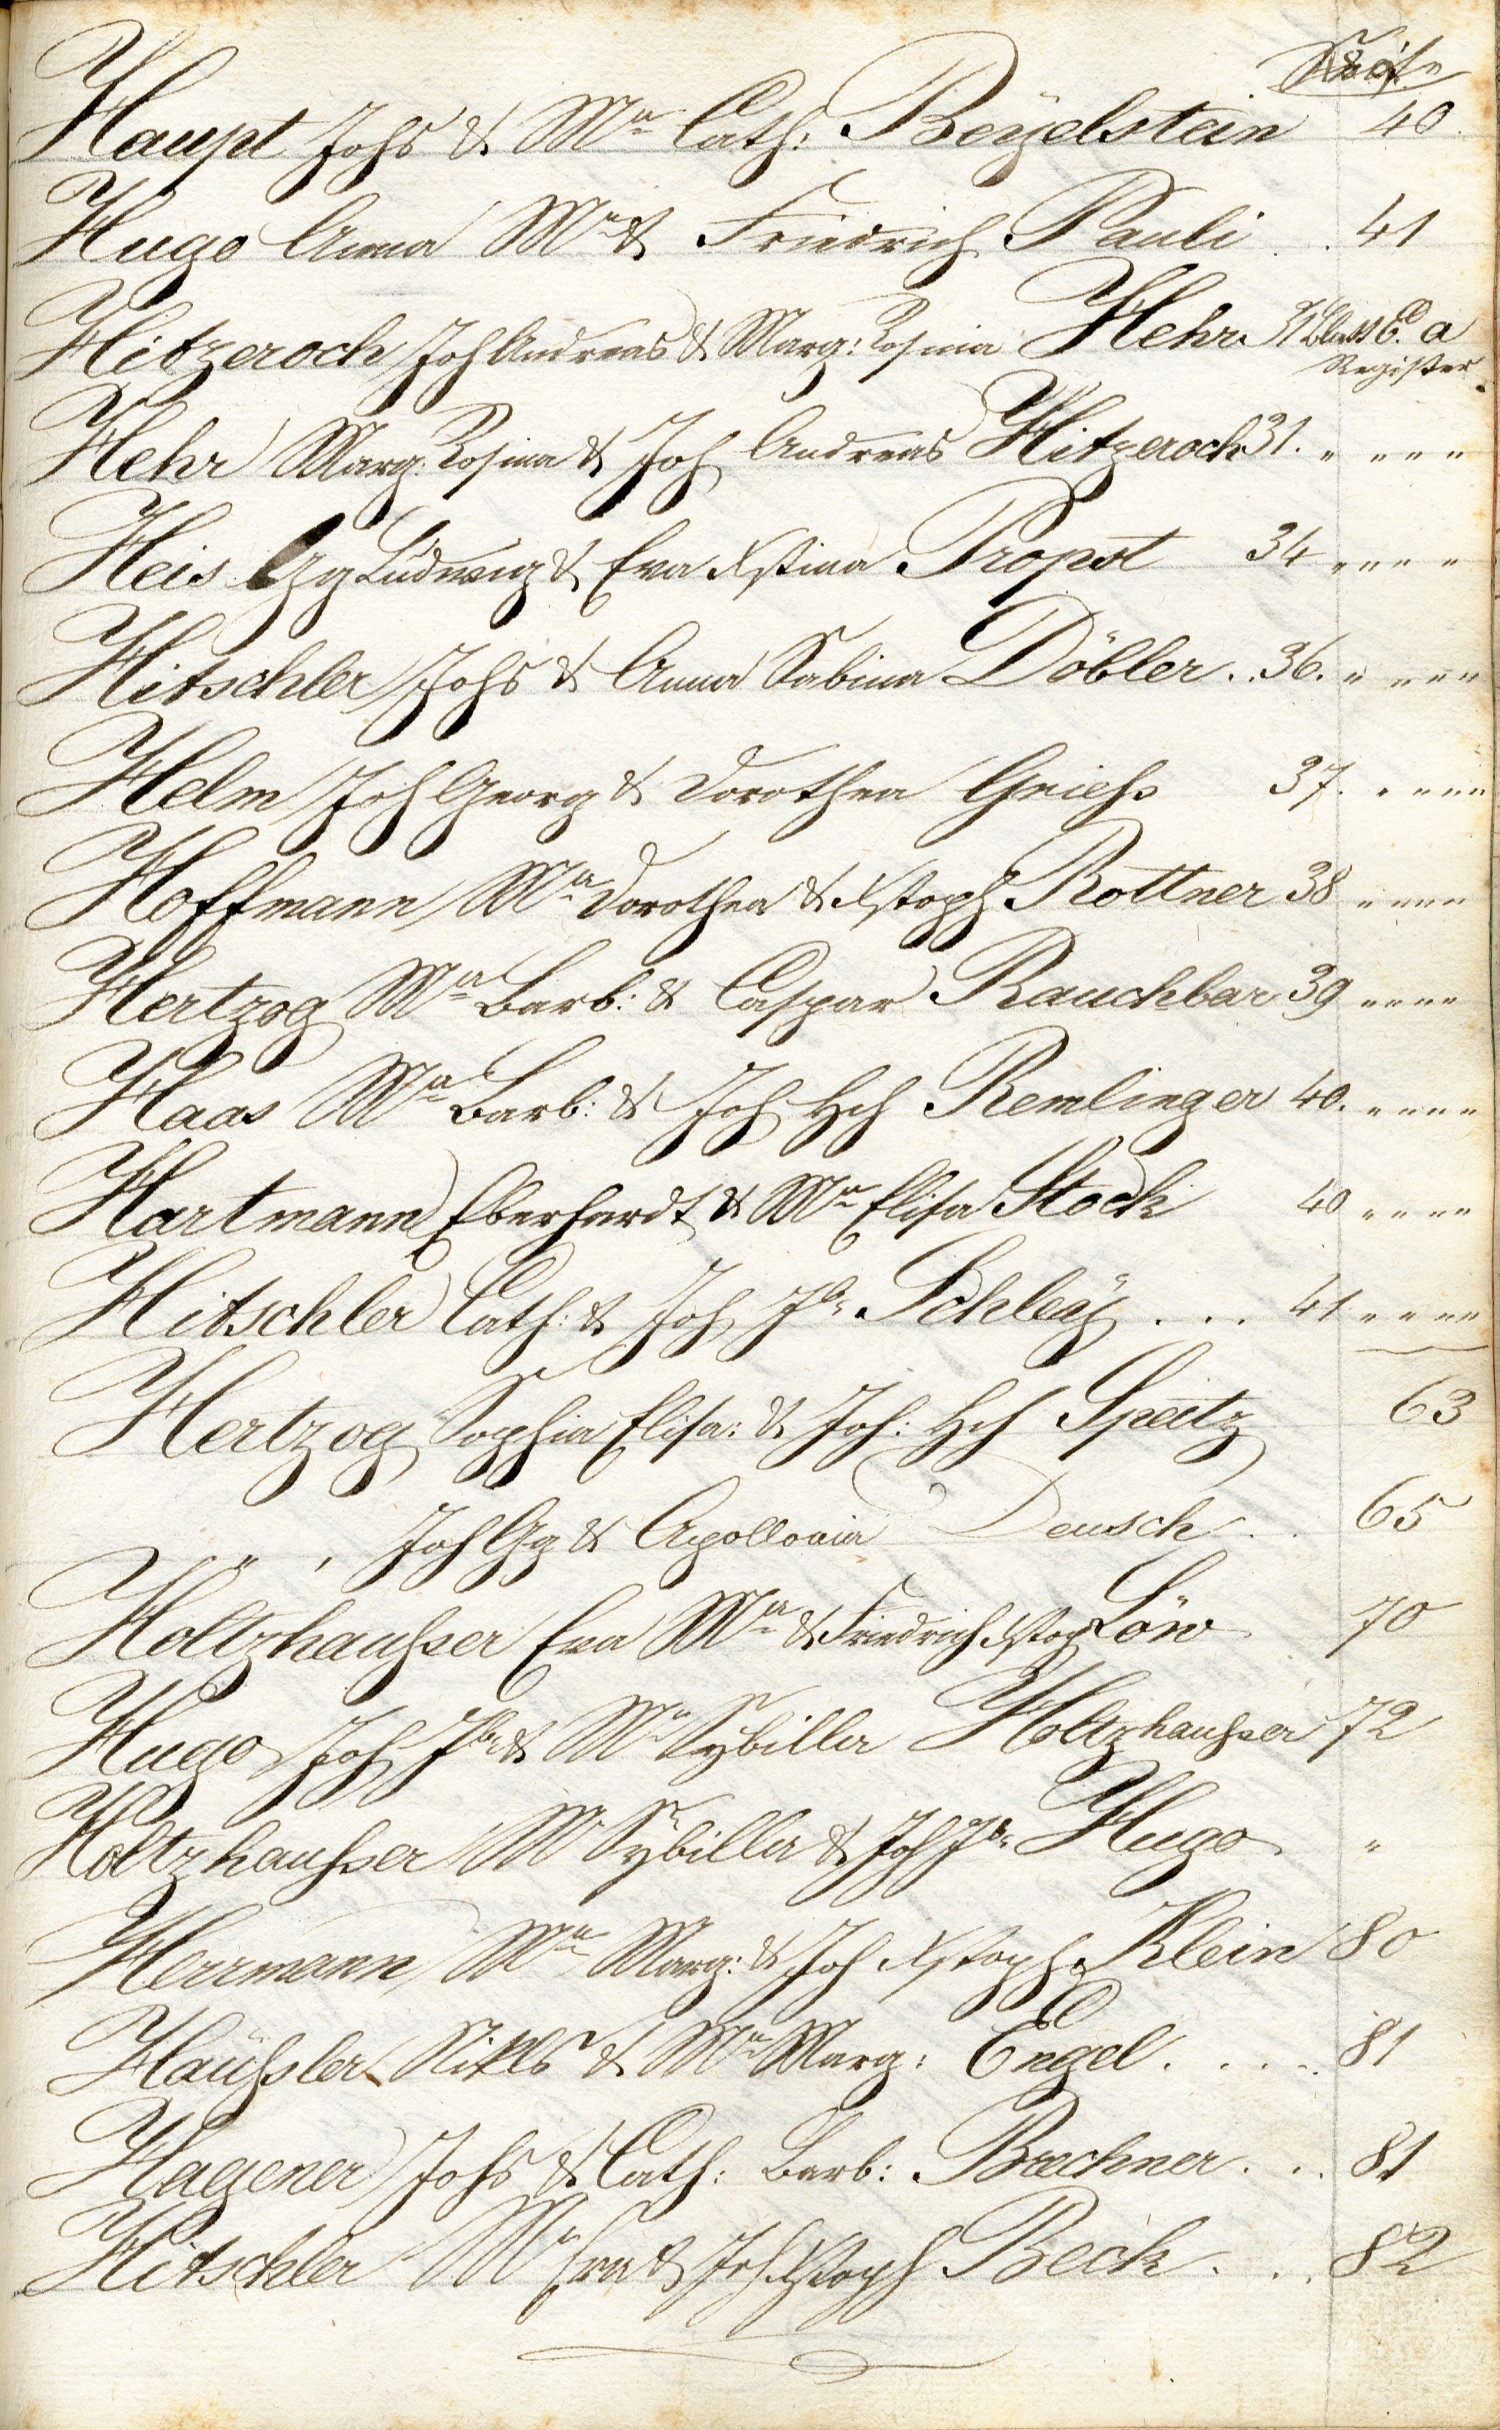 Seite
Haupt Johs & Ma Cath: Beÿelstein 40
Hugo Anna Ma & Friedrich Pauli . . 41
Hitzeroch Joh Andreas & Marg: Rosina Hehr 31 Blatt 6. a
Register
Hehr Marg: Rosina & Joh Andreas Hitzeroch 31. " " " "
Heis Gg Ludwig & Eva Xstina Propst 34 " " " "
Hitschler Johs & Anna Sabina Döbler . . 36. " " " "
Helm Joh Georg & Dorothea Griess 37. " " " "
Hoffmann Ma Dorothea & Xstoph Rottner 38 " " " "
Hertzog Ma Barb: & Caspar Rauchbar 39 " " " "
Haas Ma Barb: & Joh Hch Remlinger 40. " " " "
Hartmann Eberhardt & Ma Elisa Stock 40 " " " "
Hitschler Cath: & Joh Jb Schleÿ . . . 41 " " " "
Hertzog Sophia Elisa: & Joh: Hch Speitz 63
" , Joh Gg & Apollonia Deusch . . 65
Holtzhausser Eva Ma & Friedrich Xstoph Löw 70
Hugo Joh Jb & Ma Sybilla Holtzhausser 72
Holtzhausser Ma Sybilla & Joh Jb Hugo "
Herrmann Ma Marg: & Joh Xstoph Klein 80
Häüssler Nikls & Ma Marg: Engel . . . . 81
Hagener Johs & Cath: Barb: Brechner . . . 81
Hitschler Ma Eva & Joh Xstoph Beck . . . 82